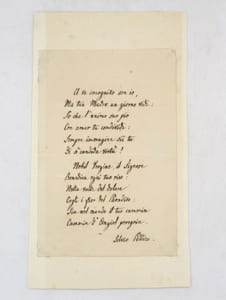 A te incognito son io,
Ma tua Madre un giorno vidi:
So che l'animo suo pio
Con amor tu condividi:
Sempre immagine sii tu
di sì candida virtù!
Nobil Vergine, il Signore
Benedica ogni tuo riso:
Nella valle del dolore
Cogli i fior del Paradiso
Sia nel mondo il tuo cammin
Cammin d'Angiol peregrin.
Silvio Pellico.